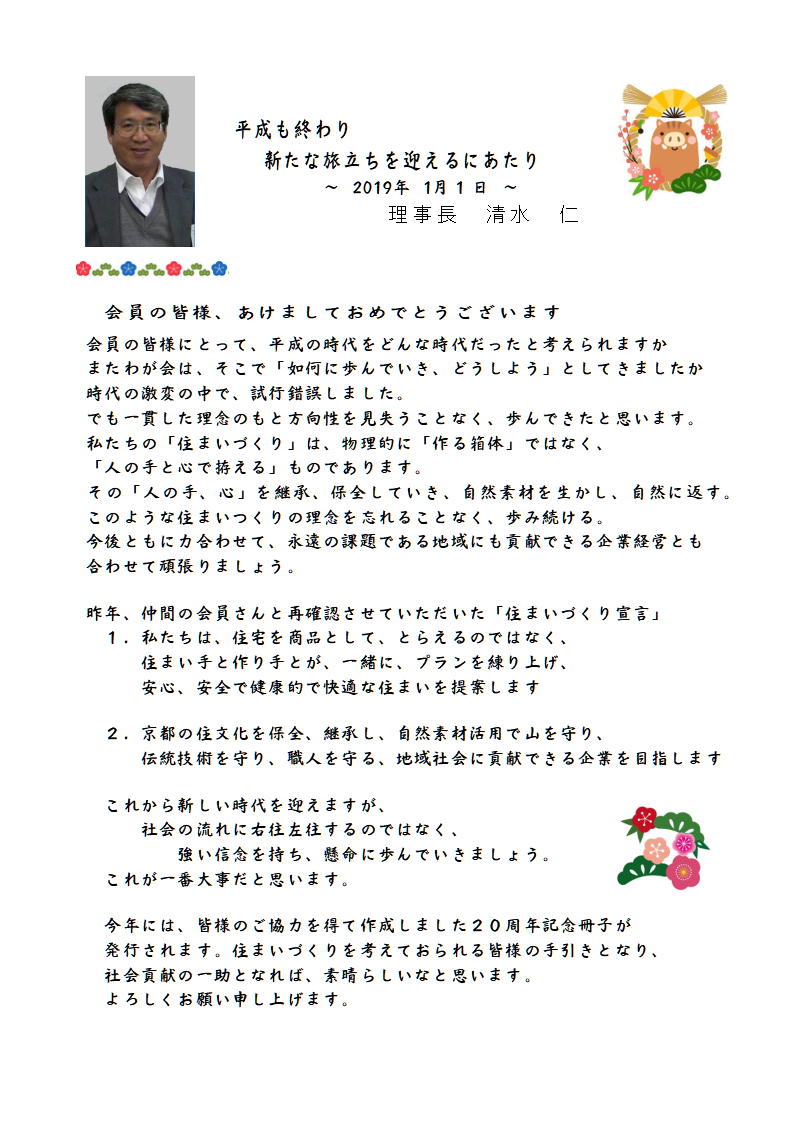 平成も終わり
新たな旅立ちを迎えるにあたり
～ 2019年 1月1日 ～
理事長 清水 仁
会員の皆様、あけましておめでとうございます
会員の皆様にとって、平成の時代をどんな時代だったと考えられますか
またわが会は、そこで「如何に歩んでいき、どうしよう」としてきましたか
時代の激変の中で、試行錯誤しました。
でも一貫した理念のもと方向性を見失うことなく、歩んできたと思います。
私たちの「住まいづくり」は、物理的に「作る箱体」ではなく、
「人の手と心で拵える」ものであります。
その「人の手、心」を継承、保全していき、自然素材を生かし、自然に返す。
このような住まいつくりの理念を忘れることなく、歩み続ける。
今後ともに力合わせて、永遠の課題である地域にも貢献できる企業経営とも
合わせて頑張りましょう。
昨年、仲間の会員さんと再確認させていただいた「住まいづくり宣言」
１．私たちは、住宅を商品として、とらえるのではなく、
住まい手と作り手とが、一緒に、プランを練り上げ、
安心、安全で健康的で快適な住まいを提案します
２．京都の住文化を保全、継承し、自然素材活用で山を守り、
伝統技術を守り、職人を守る、地域社会に貢献できる企業を目指します
これから新しい時代を迎えますが、
社会の流れに右往左往するのではなく、
強い信念を持ち、懸命に歩んでいきましょう。
これが一番大事だと思います。
今年には、皆様のご協力を得て作成しました２０周年記念冊子が
発行されます。住まいづくりを考えておられる皆様の手引きとなり、
社会貢献の一助となれば、素晴らしいなと思います。
よろしくお願い申し上げます。